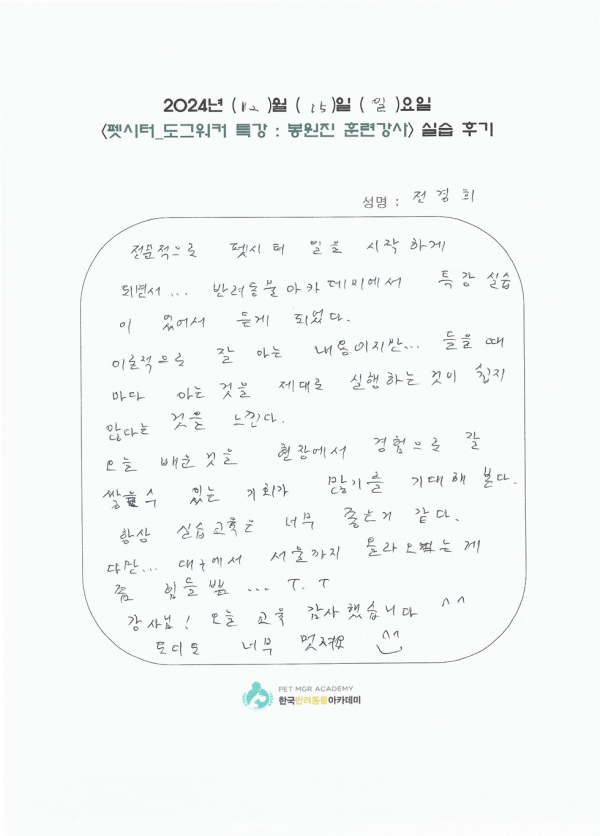 2024년 (12)월 (15)일 (일)요일
<펫시터_도그워커 특강 : 봉원진 훈련강사> 실습 후기
성명 : 전경희
전문적으로 펫시터 일을 시작하게
되면서... 반려동물아카데미에서 특강 실습
이 있어서 듣게 되었다.
이론적으로 잘 아는 내용이지만... 들을때
마다 아는것을 제대로 실행하는것이 쉽지
않다는 것을 느낀다.
오늘 배운것을 현장에서 경험으로 잘
쌓을수 있는 기회가 많기를 기대해 본다.
항상 실습교육은 너무 좋은거 같다.
다만... 대구에서 서울까지 올라오는게
좀 힘들뿐... T.T
강사님! 오늘 교육 감사했습니다 ^^
도디도 너무 멋져요 ^^
PET MGR ACADEMY
한국반려동물아카데미